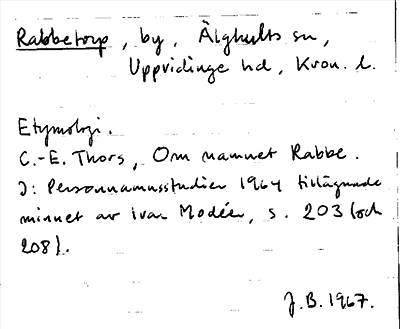 Rabbetorp, by, Älghults sn,
Uppvidinge hd, Kron. l.
Etymologi.
C.-E. Thors, Om namnet Rabbe.
I: Personnamnsstudier 1964 tillägnade
minnet av Ivar Modéer, s. 203 (och
208).
J.B. 1967.